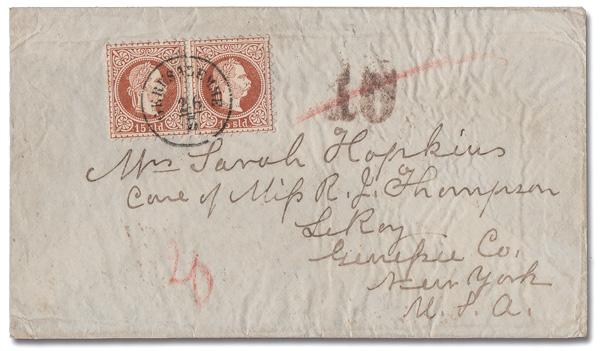 15 sld 15 sld
10
Mrs Sarah Hopkins
Care of Miss R. J. Thompson
LeRoy
Genesee Co.
New York
U. S. A.
20